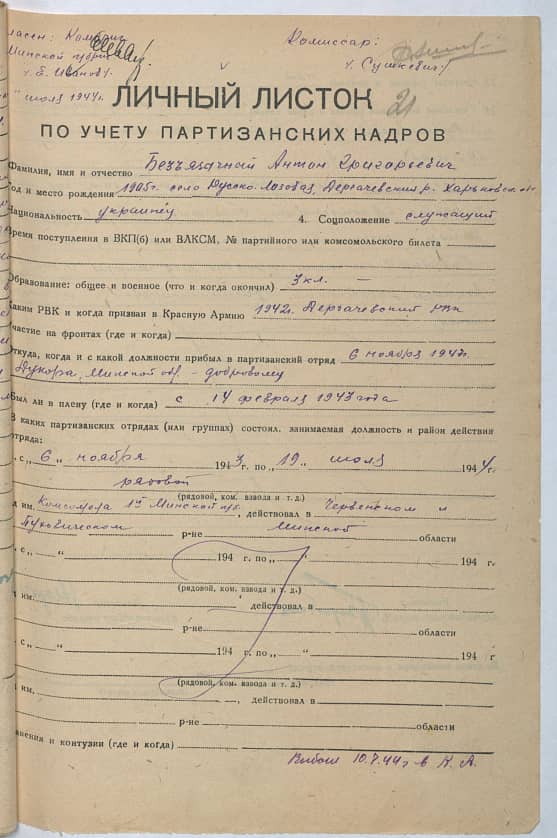 Комиссар:
Минской
т. Сушкевич
июля 1944г.
ЛИЧНЫЙ ЛИСТОК 21
ПО УЧЕТУ ПАРТИЗАНСКИХ КАДРОВ
Фамилия, имя и отчество Антон Григорьевич
год и место рождения 1905г. село Русско-Лозовая, Дергачевский р. Харьковской
Национальность украинец 4. Соцположение служащий
Время поступления в ВКП(б) или ВЛКСМ, № партийного или комсомольского билета
Образование: общее и военное (что и когда окончил) 3 кл. —
Каким РВК и когда призван в Красную Армию 1942г. Дергачевский РВК
участие на фронтах (где и когда)
Откуда, когда и с какой должности прибыл в партизанский отряд 6 ноября
Дукора, Минской обл. -
Был ли в плену (где и когда) с 14 февраля 1943 года
В каких партизанских отрядах (или группах) состоял, занимаемая должность и район действия
отряда:
с „ 6 „ ноября 1943 г. по „ 19 „ июля 1944 г.
рядовой
(рядовой, ком. взвода и т. д.)
им. Комсомола 1й Минской , действовал в Червенском и
Пуховичском р-не Минской области
с „ “ 194 г. по „ “ 194 г.
(рядовой, ком. взвода и т. д.)
им. действовал в
р-не области
с „ “ 194 г. по „ “ 194 г
(рядовой, ком. взвода и т. д.)
им. , действовал в
р-не области
ранения и контузии (где и когда)
Выбыл 10.7.44г в К. А.